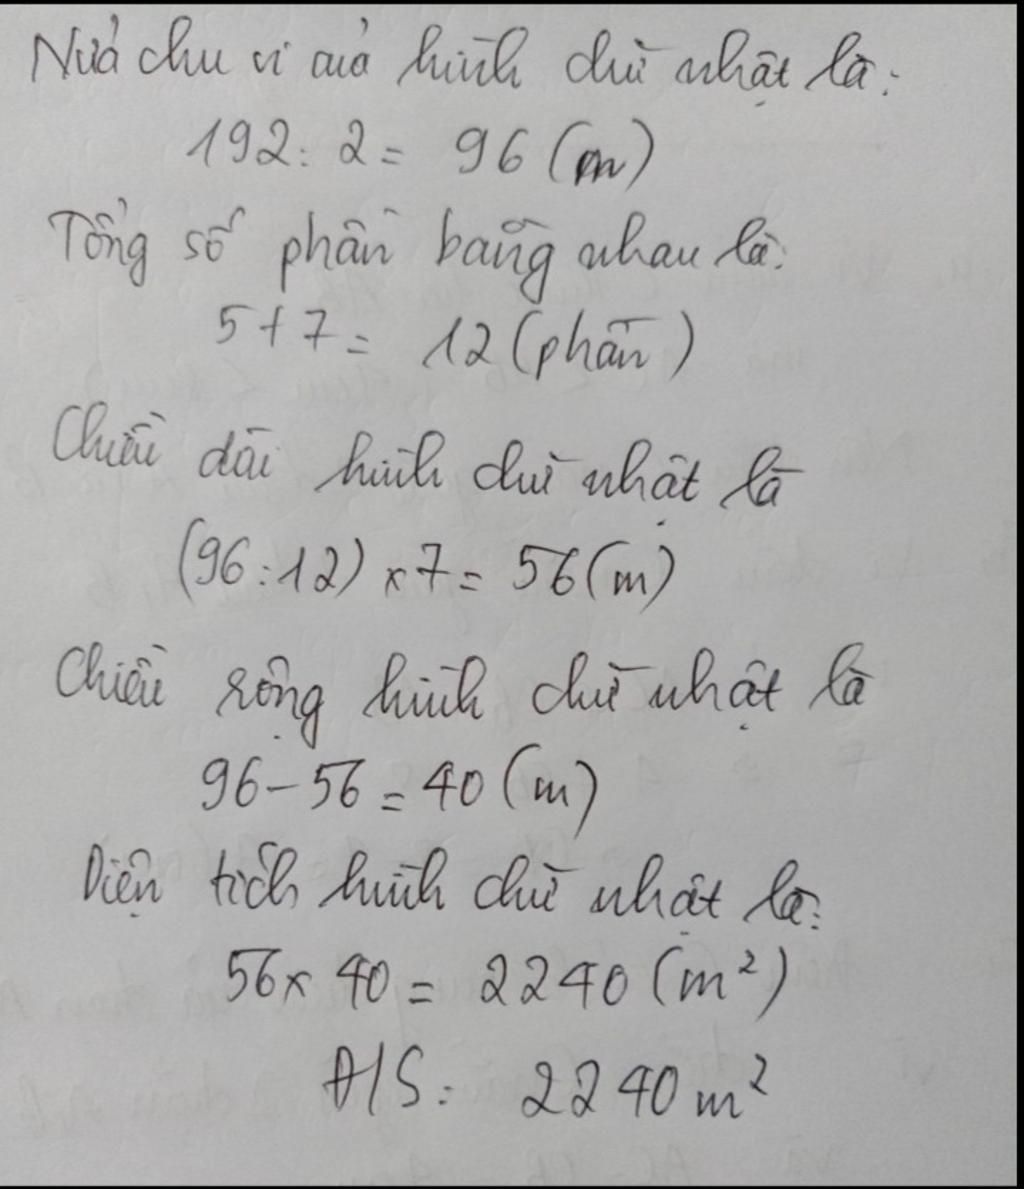 Nửa chu vi của hình chữ nhật là:
192: 2 = 96 (m)
Tổng số phần bằng nhau là:
5+7 = 12 (phần)
Chiều dài hình chữ nhật là
(96:12) x 7 = 56 (m)
Chiều rộng hình chữ nhật là
96 - 56 = 40 (m)
Diện tích hình chữ nhật là:
56 x 40 = 2240 (m²)
Đ/S: 2240 m²